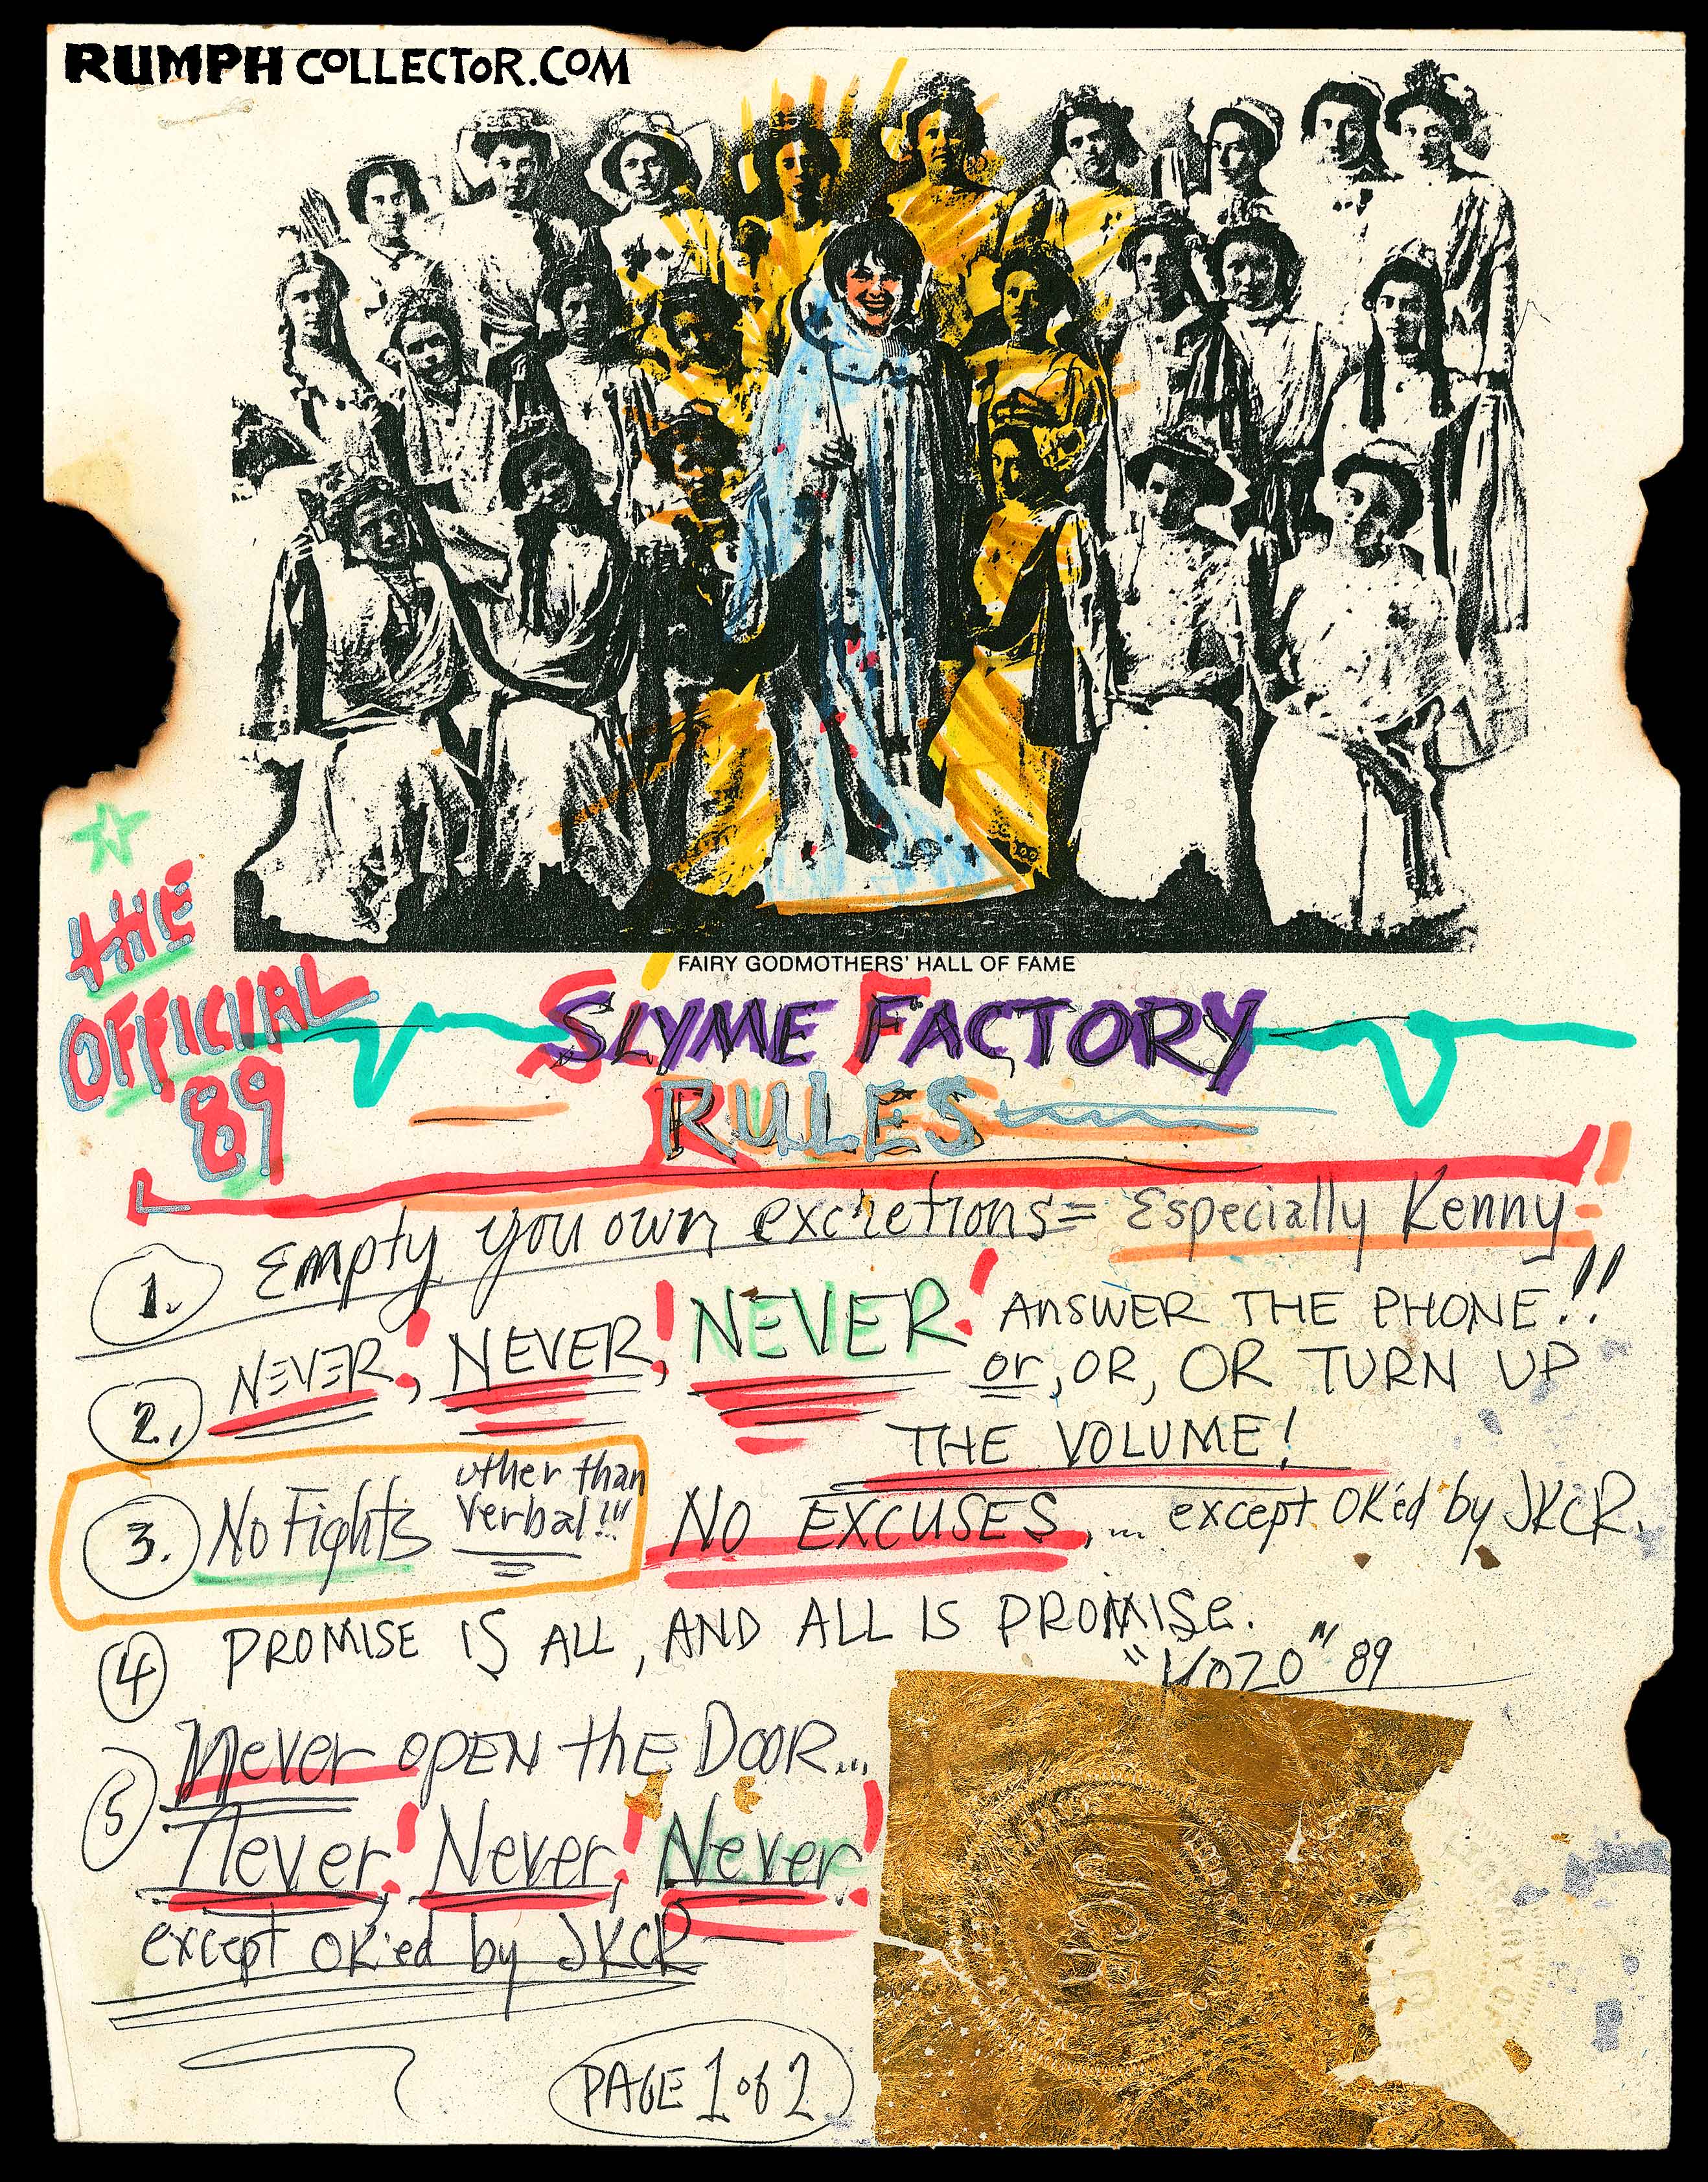 RUMPH COLLECTOR.COM
FAIRY GODMOTHERS' HALL OF FAME
THE
OFFICIAL
89
SLYME FACTORY
RULES
1. Empty you own excretions = Especially Kenny
2. NEVER!, NEVER!, NEVER! ANSWER THE PHONE!!
or, OR, OR TURN UP
THE VOLUME!
3. No Fights other than
verbal!!! NO EXCUSES,... except OK'ed by JKCR.
4 PROMISE IS ALL, AND ALL IS PROMISE.
"KOZO" 89
5 Never OPEN thE DOOR...
Never! Never! Never!
except OK'ed by JKCR
PAGE 1 of 2